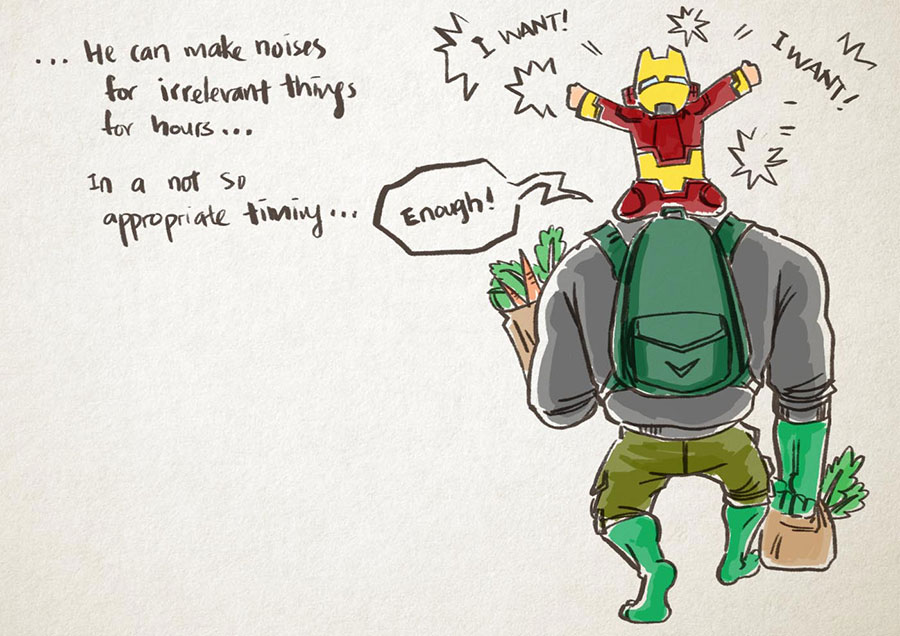 ... He can make noises
for irrelevant things
for hours...
In a not so
appropriate timing...
Enough!
I WANT!
I WANT!